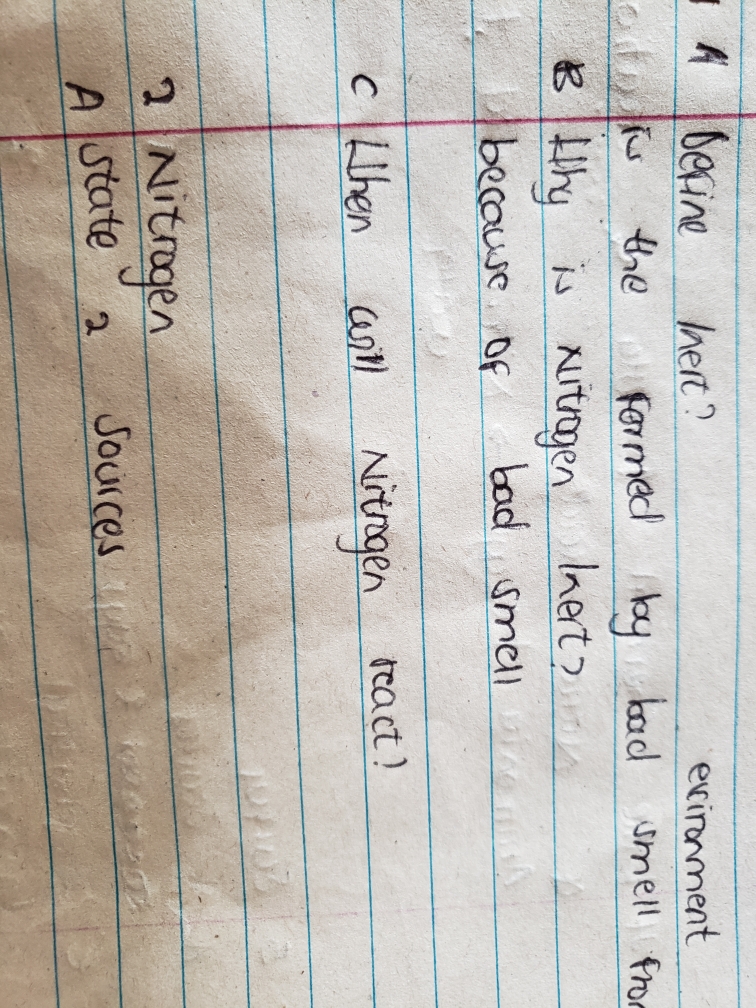 1 A Define Inert? evironment
is the formed by bad smell from
B Why is Nitrogen Inert?
because of bad smell
C When will Nitrogen react?
2 Nitrogen
A State 2 Sources